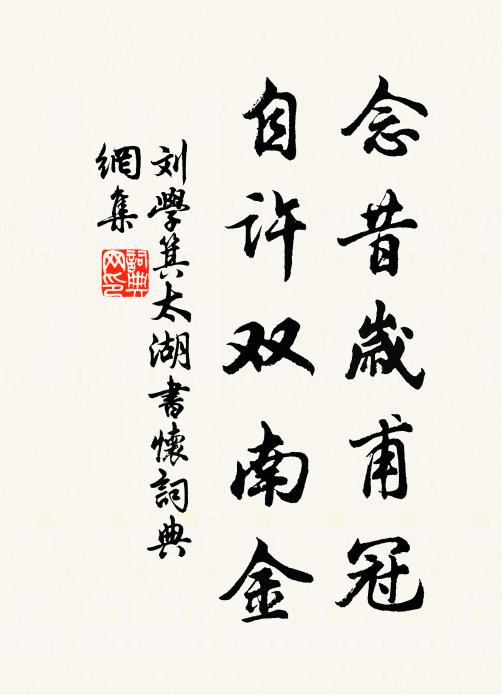 念昔歲甫冠
自许双南金
刘學箕太湖書懷詞典
網集
詞典网印